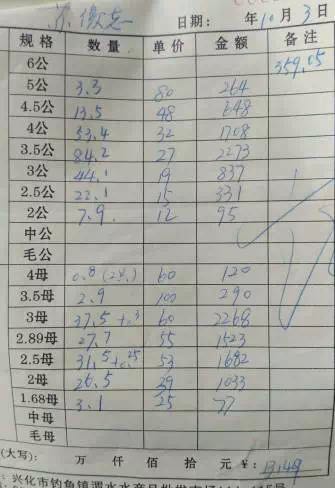 日期： 年10月3日
规格 数量 单价 金额 备注
6公 359.05
5公 3.3 80 264
4.5公 13.5 48 648
4公 53.4 32 1708
3.5公 84.2 27 2273
3公 44.1 19 837
2.5公 22.1 15 331
2公 7.9 12 95
中公
毛公
4母 0.8 60 120
3.5母 2.9 100 290
3母 37.5+0.3 60 2268
2.89母 27.7 55 1523
2.5母 31.5+0.25 53 1682
2母 26.5 39 1033
1.68母 3.1 25 77
中母
毛母
(大写): 万 仟 佰 拾 元 ¥: 13149
: 兴化市钓鱼镇